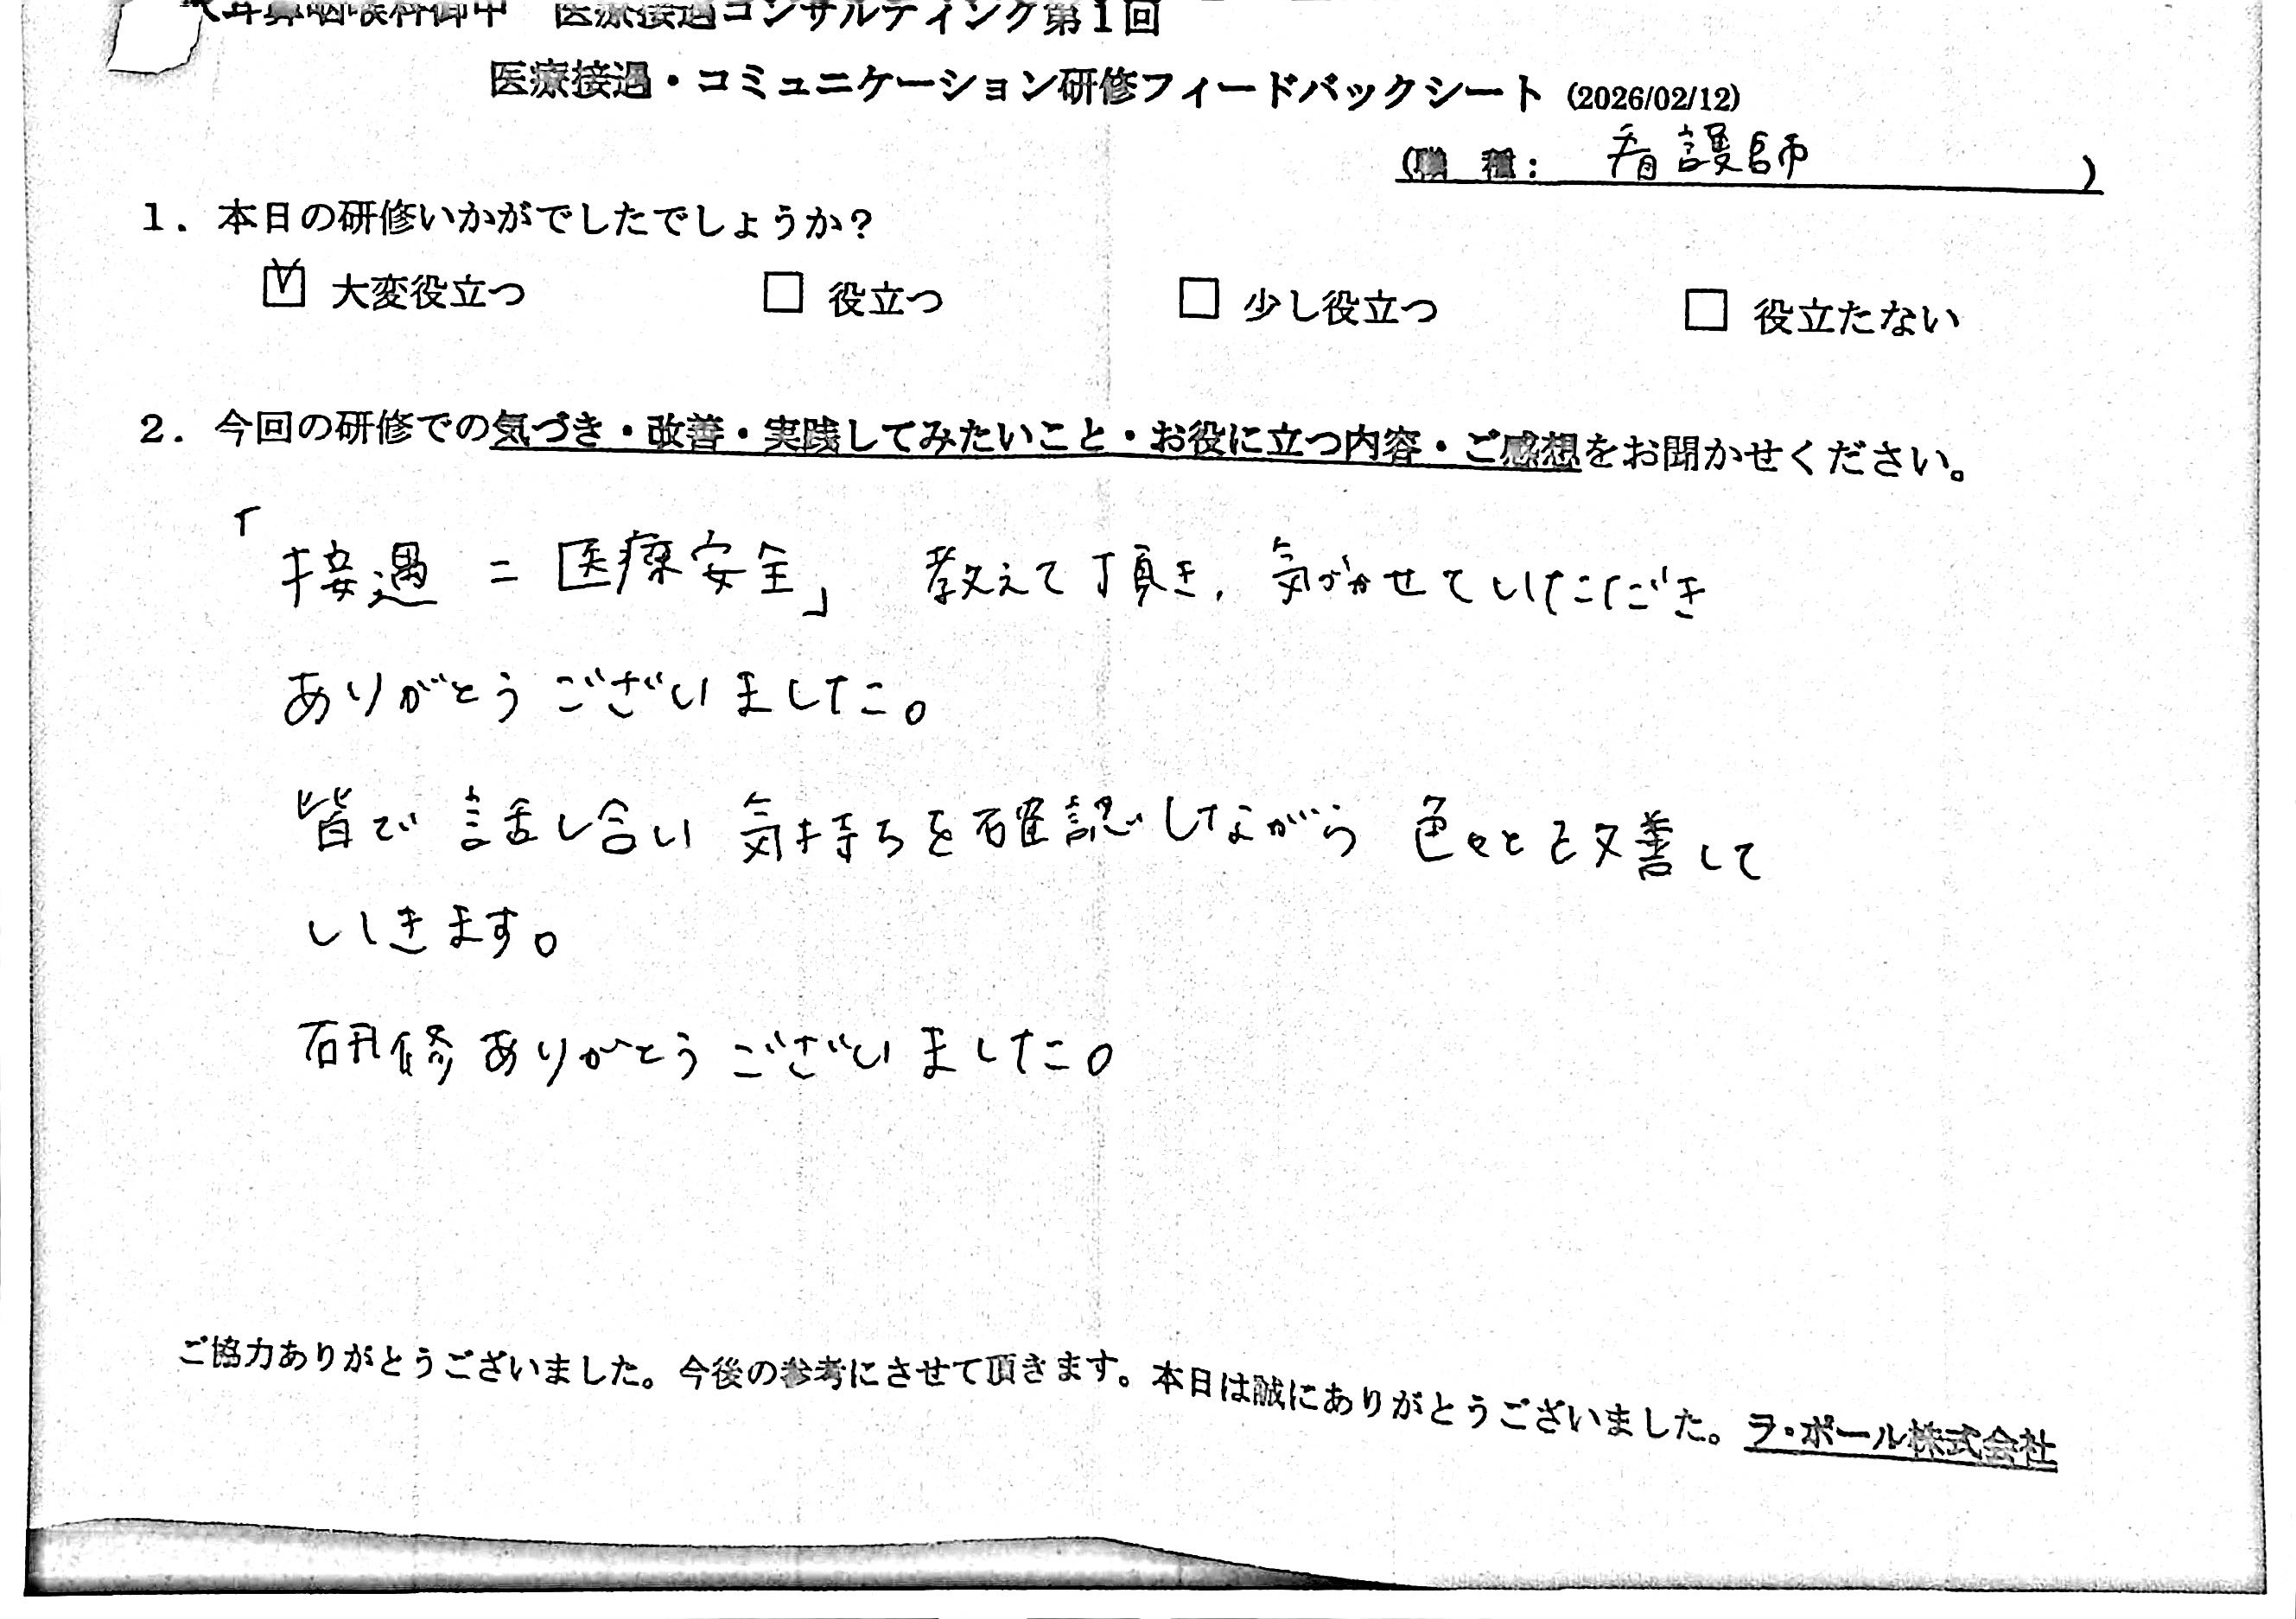 耳鼻咽喉科御中 医療接遇コンサルティング第1回
医療接遇・コミュニケーション研修フィードバックシート (2026/02/12)
(職 種: 看護師 )
1. 本日の研修いかがでしたでしょうか?
☑ 大変役立つ □ 役立つ □ 少し役立つ □ 役立たない
2. 今回の研修での気づき・改善・実践してみたいこと・お役に立つ内容・ご感想をお聞かせください。
「接遇 = 医療安全」 教えて頂き、気づかせていただき
ありがとうございました。
皆で 話し合い 気持ちを確認しながら 色々と改善して
いきます。
研修ありがとうございました。
ご協力ありがとうございました。今後の参考にさせて頂きます。本日は誠にありがとうございました。ラ・ポール株式会社